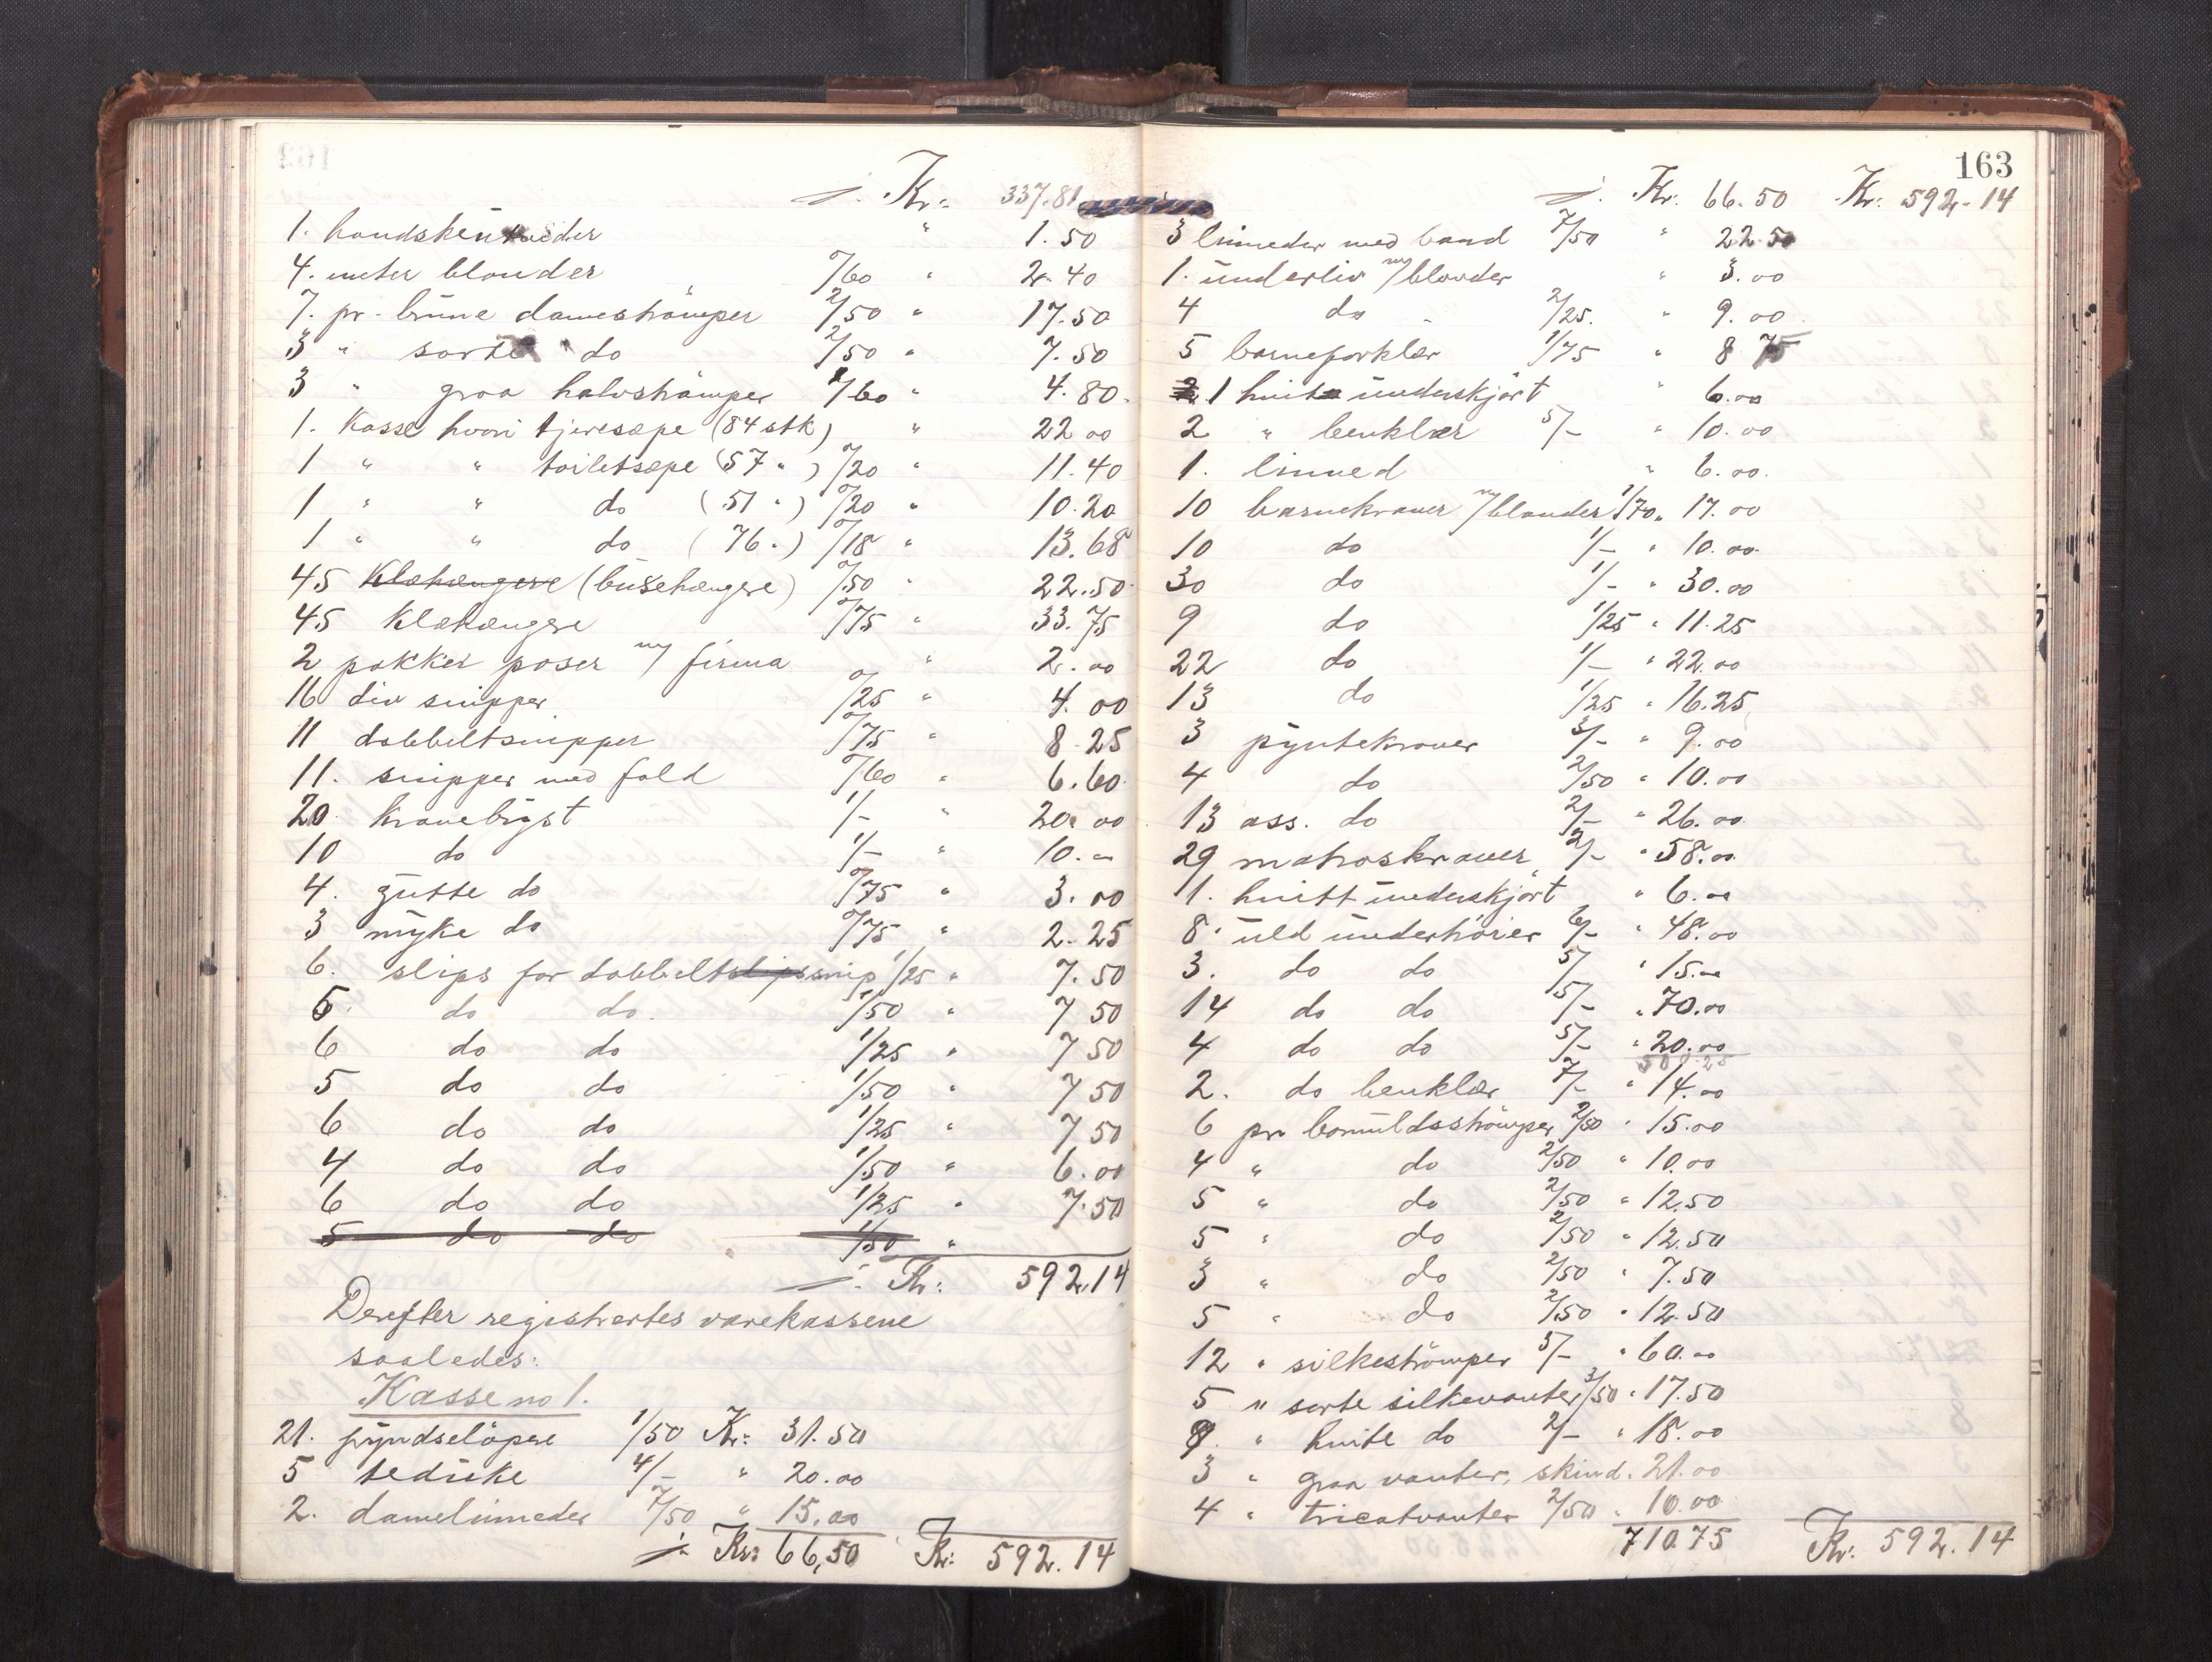 ÷ Kr: 337.81
1. handskeutvider " 1.50
4. meter blonder 0/60 " 2.40
7. pr. brune dameströmper 2/50 " 17.50
3 " sorte do 2/50 " 7.50
3 " graa halvströmper 1/60 " 4.80
1. Kasse hvori tjæresæpe (84 stk) " 22 00
1 " " toiletsæpe (57 ") 0/20 " 11.40
1 " " do (51 ") 0/20 " 10.20
1 " " do (76 ") 0/18 " 13.68
45 Klæhængere (buxehængere) 0/50 " 22.50
45 Klæhængere 0/75 " 33.75
2 pakker poser m/ firma " 2.00
16 div snipper 0/25 " 4.00
11 dobbeltsnipper 0/75 " 8.25
11. snipper med fald 0/60 " 6.60
20 kravebryst 1/- " 20.00
10 do 1/- " 10.-
4. gutte do 0/75 " 3.00
3 myke do 0/75 " 2.25
6. slips for dobbeltslipssnip 1/25 " 7.50
5 do do 1/50 " 7 50
6 do do 1/25 " 7 50
5 do do 1/50 " 7 50
6 do do 1/25 " 7 50
4 do do 1/50 " 6.00
6 do do 1/25 " 7.50
5 do do 1/50 "
÷ Kr: 592.14
Derefter registrertes varekassene
saaledes:
Kasse no 1.
21. pyndselöpere 1/50 Kr: 31.50
5 teduke 4/- " 20.00
2. damelinneder 7/50 " 15.00
÷ Kr: 66,50 Kr: 592.14
163
÷ Kr: 66.50 Kr: 592.14
3 linneder med baand 7/50 " 22.50
1. underliv m/blonder " 3.00
4 do 2/25. " 9.00
5 barneforklær 1/75 " 8 75
1 hvit underskjört " 6.00
2 " benklær 5/- " 10.00
1. linned " 6.00
10 barnekraver m/blonder 1/70 " 17.00
10 do 1/- " 10.00
30 do 1/- " 30.00
9 do 1/25 " 11.25
22 do 1/- " 22.00
13 do 1/25 " 16.25
3 pyntekraver 3/- " 9.00
4 do 2/50 " 10.00
13 ass. do 2/- " 26.00
29 matroskraver 2/- " 58.00
1. hvitt underskjört " 6.00
8. uld undertröier 6/- " 48.00
3. do do 5/ " 15.00
14 do do 5/- " 70.00
4 do do 5/- " 20.00
508.25
2. do benklær 7/- " 14.00
6 pr bomuldsströmper 2/50 " 15.00
4 " do 2/50 " 10.00
5 " do 2/50 " 12.50
5 " do 2/50 " 12.50
3 " do 2/50 " 7.50
5 " do 2/50 " 12.50
12 " silkeströmper 5/- " 60.00
5 " sorte silkevanter 3/50 " 17.50
9. " hvite do 2/- " 18.00
3 " graa vanter, skind " 21.00
4 " tricotvanter 2/50 " 10.00
710.75 Kr: 592.14